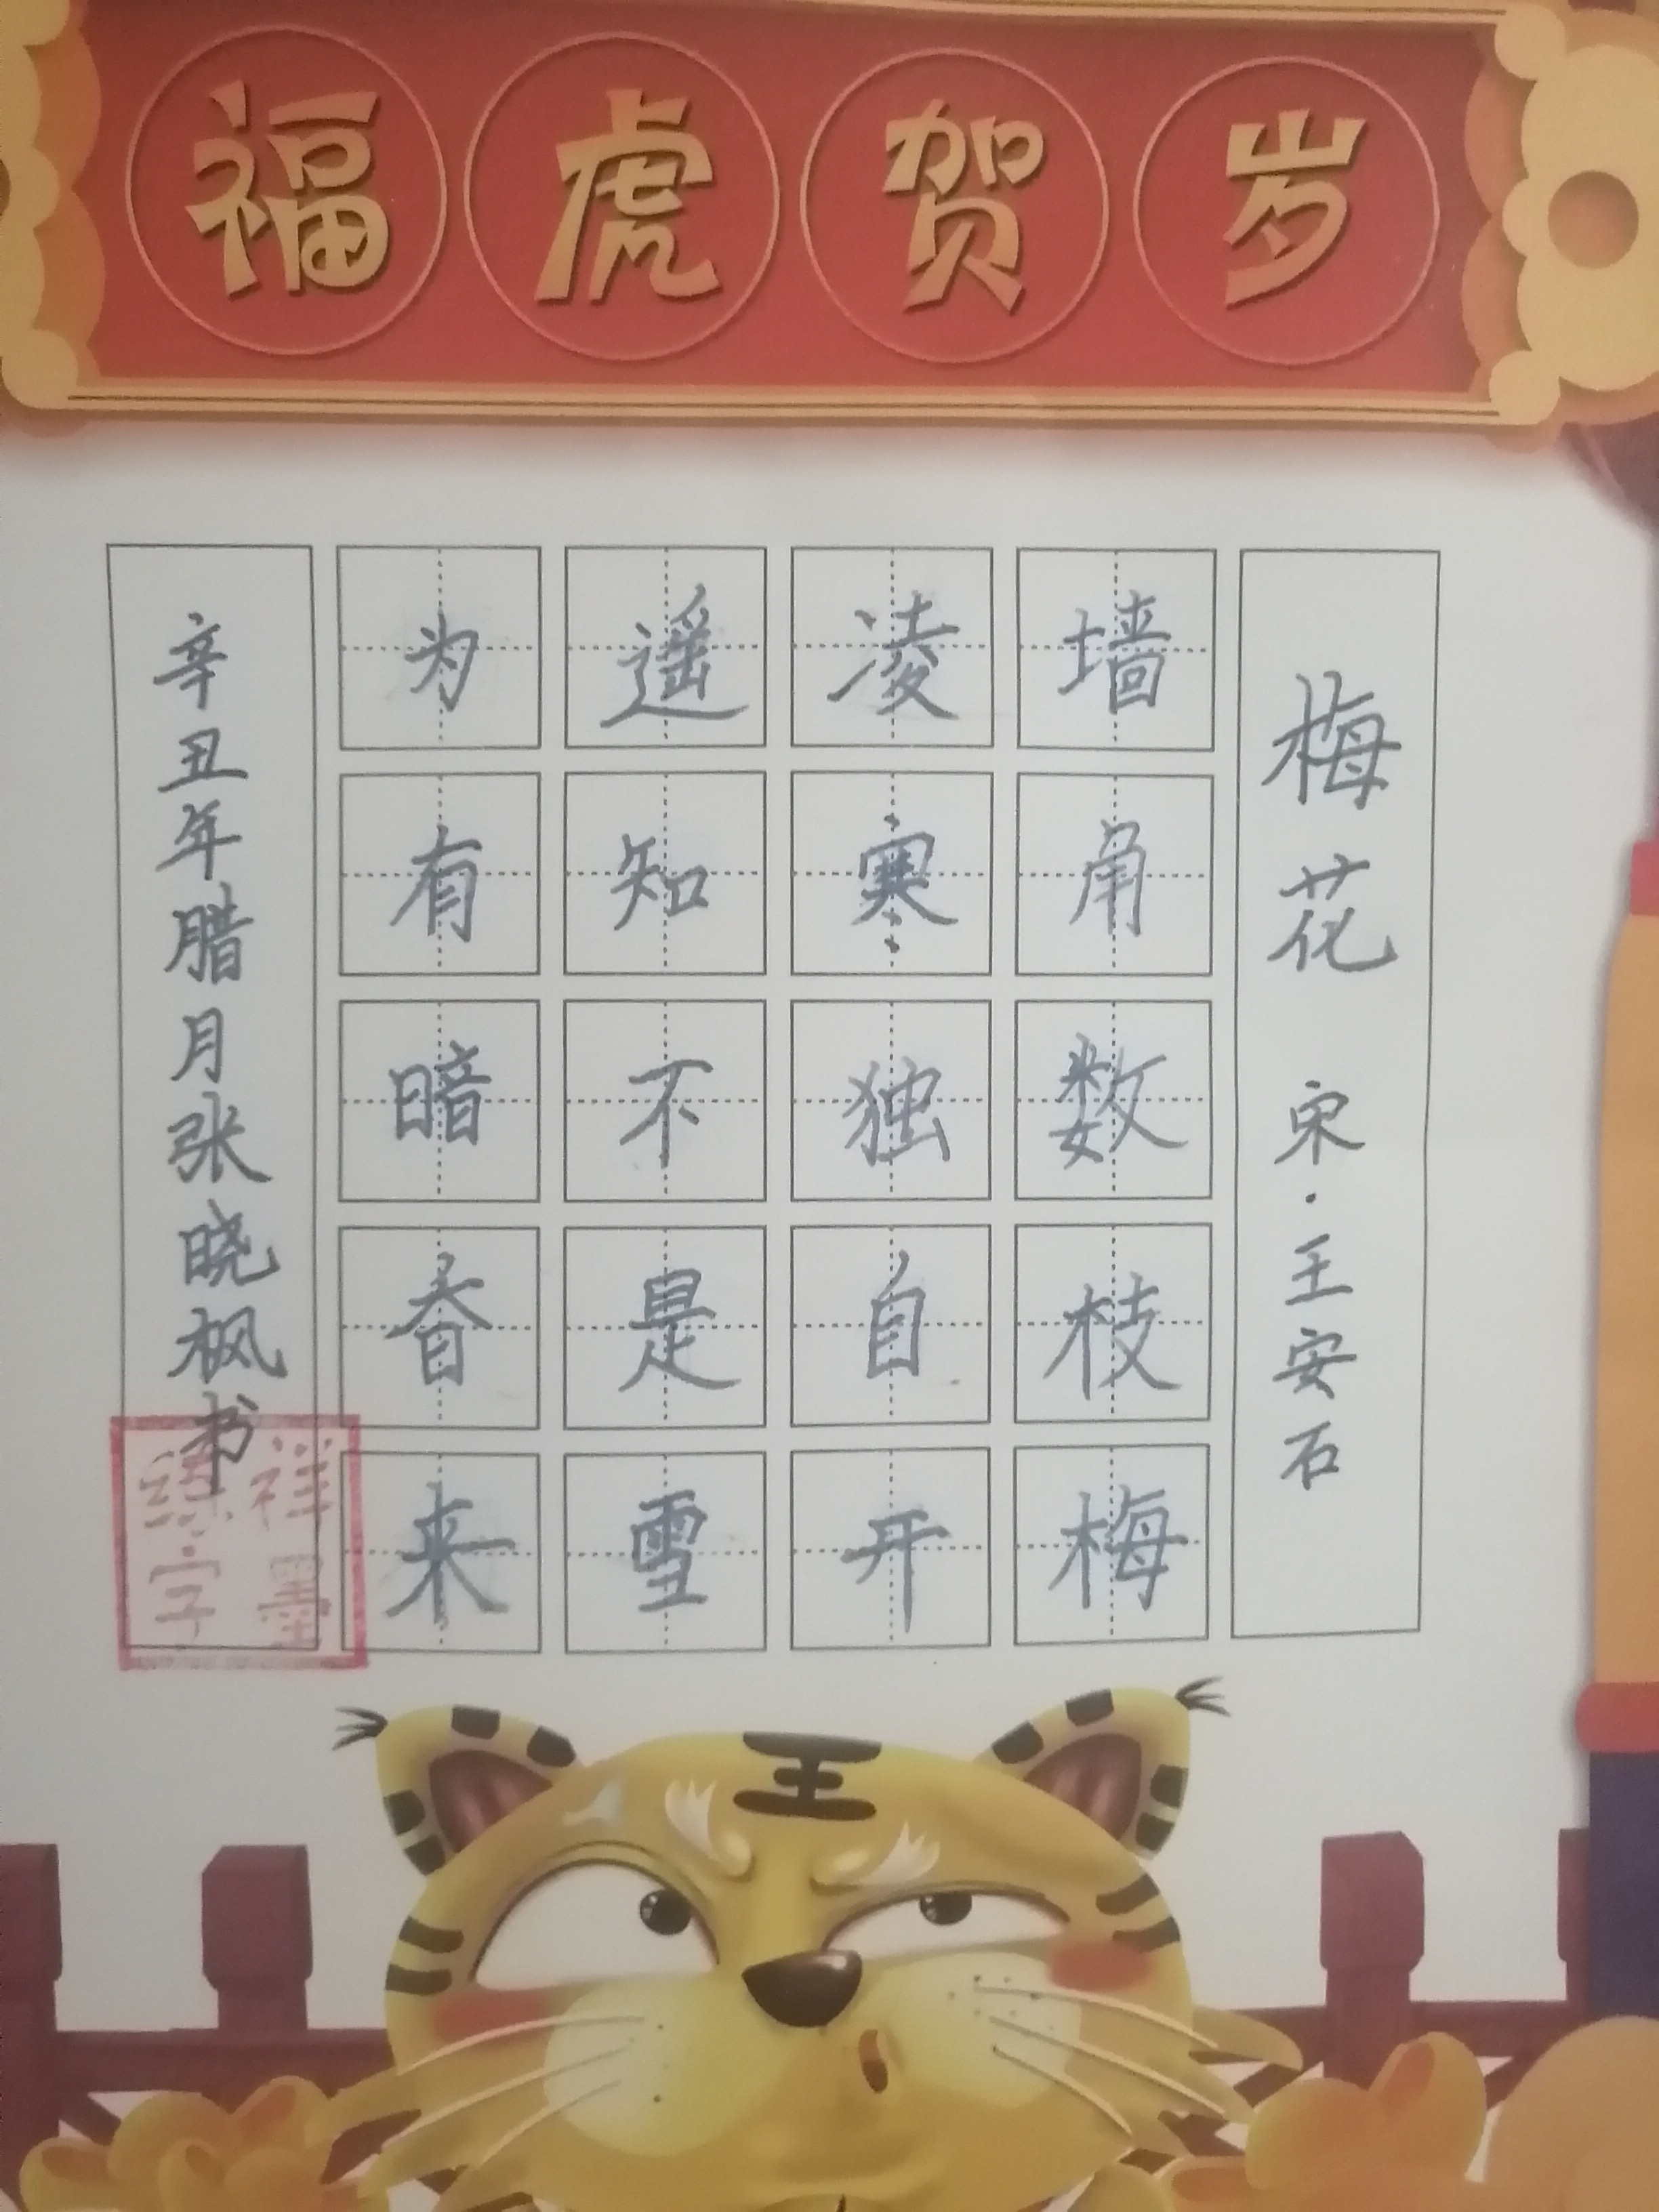 福虎贺岁
梅花 宋·王安石
墙角数枝梅
凌寒独自开
遥知不是雪
为有暗香来
辛丑年腊月张晓枫书
祥墨
练字
王